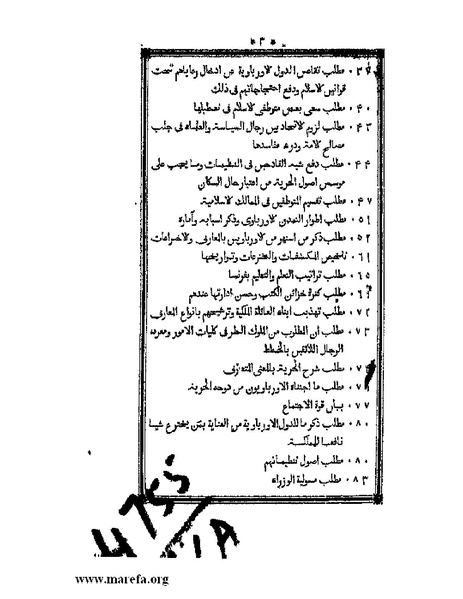 * ٣ *
٠٣٧ مطلب تقاعس الدول الاورباوية من ادخال رعاياهم تحت
قوانين الاسلام ودفع احتجاجاتهم في ذلك
٠٤٠ مطلب سعى بعض متوظفى الاسلام في تعطيلها
٠٤٣ مطلب لزوم الاتحاد بين رجال السياسة والعلماء في جلب
مصالح الامة ودرء مفاسدها
٠٤٤ مطلب دفع شبه القادحين في التنظيمات وما يجب على
موسس اصول الحرية من اعتبار حال السكان
٠٤٧ مطلب تقسيم المتوظفين في الممالك الاسلامية
٠٥١ مطلب اطوار التمدن الاورباوى وذكر اسبابه وآثاره
٠٥٢ مطلب ذكر من اشتهر من الاورباويين بالمعارف والاختراعات
٠٦١ تلخيص المكتشفات والمخترعات وتواريخها
٠٦٥ مطلب تراتيب التعلم والتعليم بفرنسا
مطلب كثرة خزائن الكتب وحسن ادارتها عندهم
٠٧٢ مطلب تهذيب ابناء العائلة الملكية وترشيحهم بانواع المعارف
٠٧٣ مطلب ان المطلوب من الملوك النظر في كليات الامور ومعرفة
الرجال اللائقين بالخطط
مطلب شرح الحرية بالمعنى المتعارف
مطلب ما اجتناه الاورباويون من دوحة الحرية
٠٧٧ بيان قوة الاجتماع
٠٨٠ مطلب ذكر ما للدول الاورباوية من العناية بمن يخترع شيا
نافعا للمملكة
٠٨٠ مطلب اصول تنظيماتهم
٠٨٣ مطلب مسولية الوزراء
4755
www.marefa.org